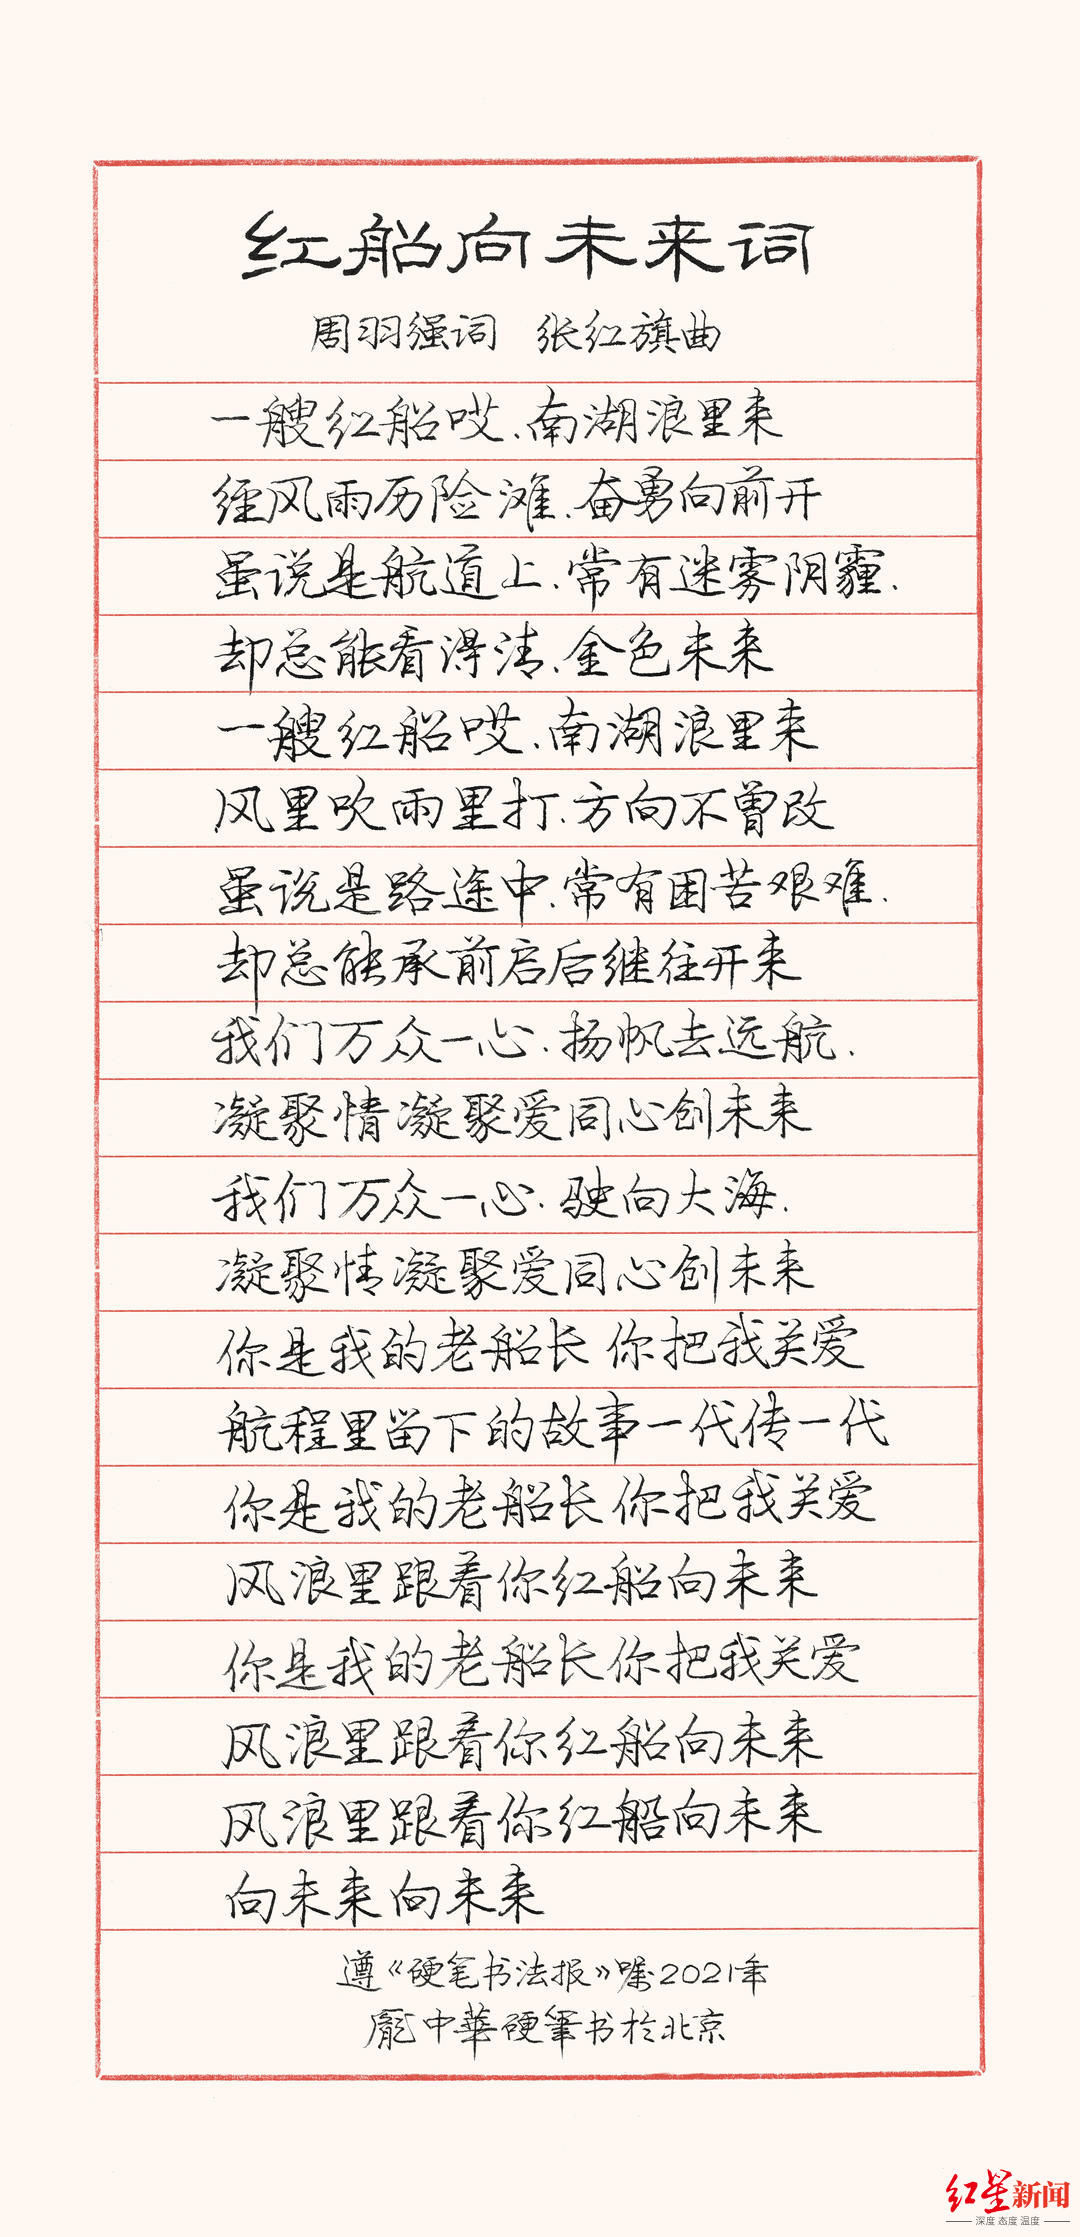 红船向未来词
周羽强词 张红旗曲
一艘红船哎、南湖浪里来
经风雨历险滩、奋勇向前开
虽说是航道上、常有迷雾阴霾.
却总能看得清、金色未来
一艘红船哎、南湖浪里来
风里吹雨里打、方向不曾改
虽说是路途中、常有困苦艰难.
却总能承前启后继往开来
我们万众一心.扬帆去远航.
凝聚情凝聚爱同心创未来
我们万众一心.驶向大海.
凝聚情凝聚爱同心创未来
你是我的老船长 你把我关爱
航程里留下的故事一代传一代
你是我的老船长 你把我关爱
风浪里跟着你红船向未来
你是我的老船长你把我关爱
风浪里跟着你红船向未来
风浪里跟着你红船向未来
向未来 向未来
遵《硬笔书法报》嘱2021年
龐中華硬筆书于北京
红星新闻
深度 态度 温度